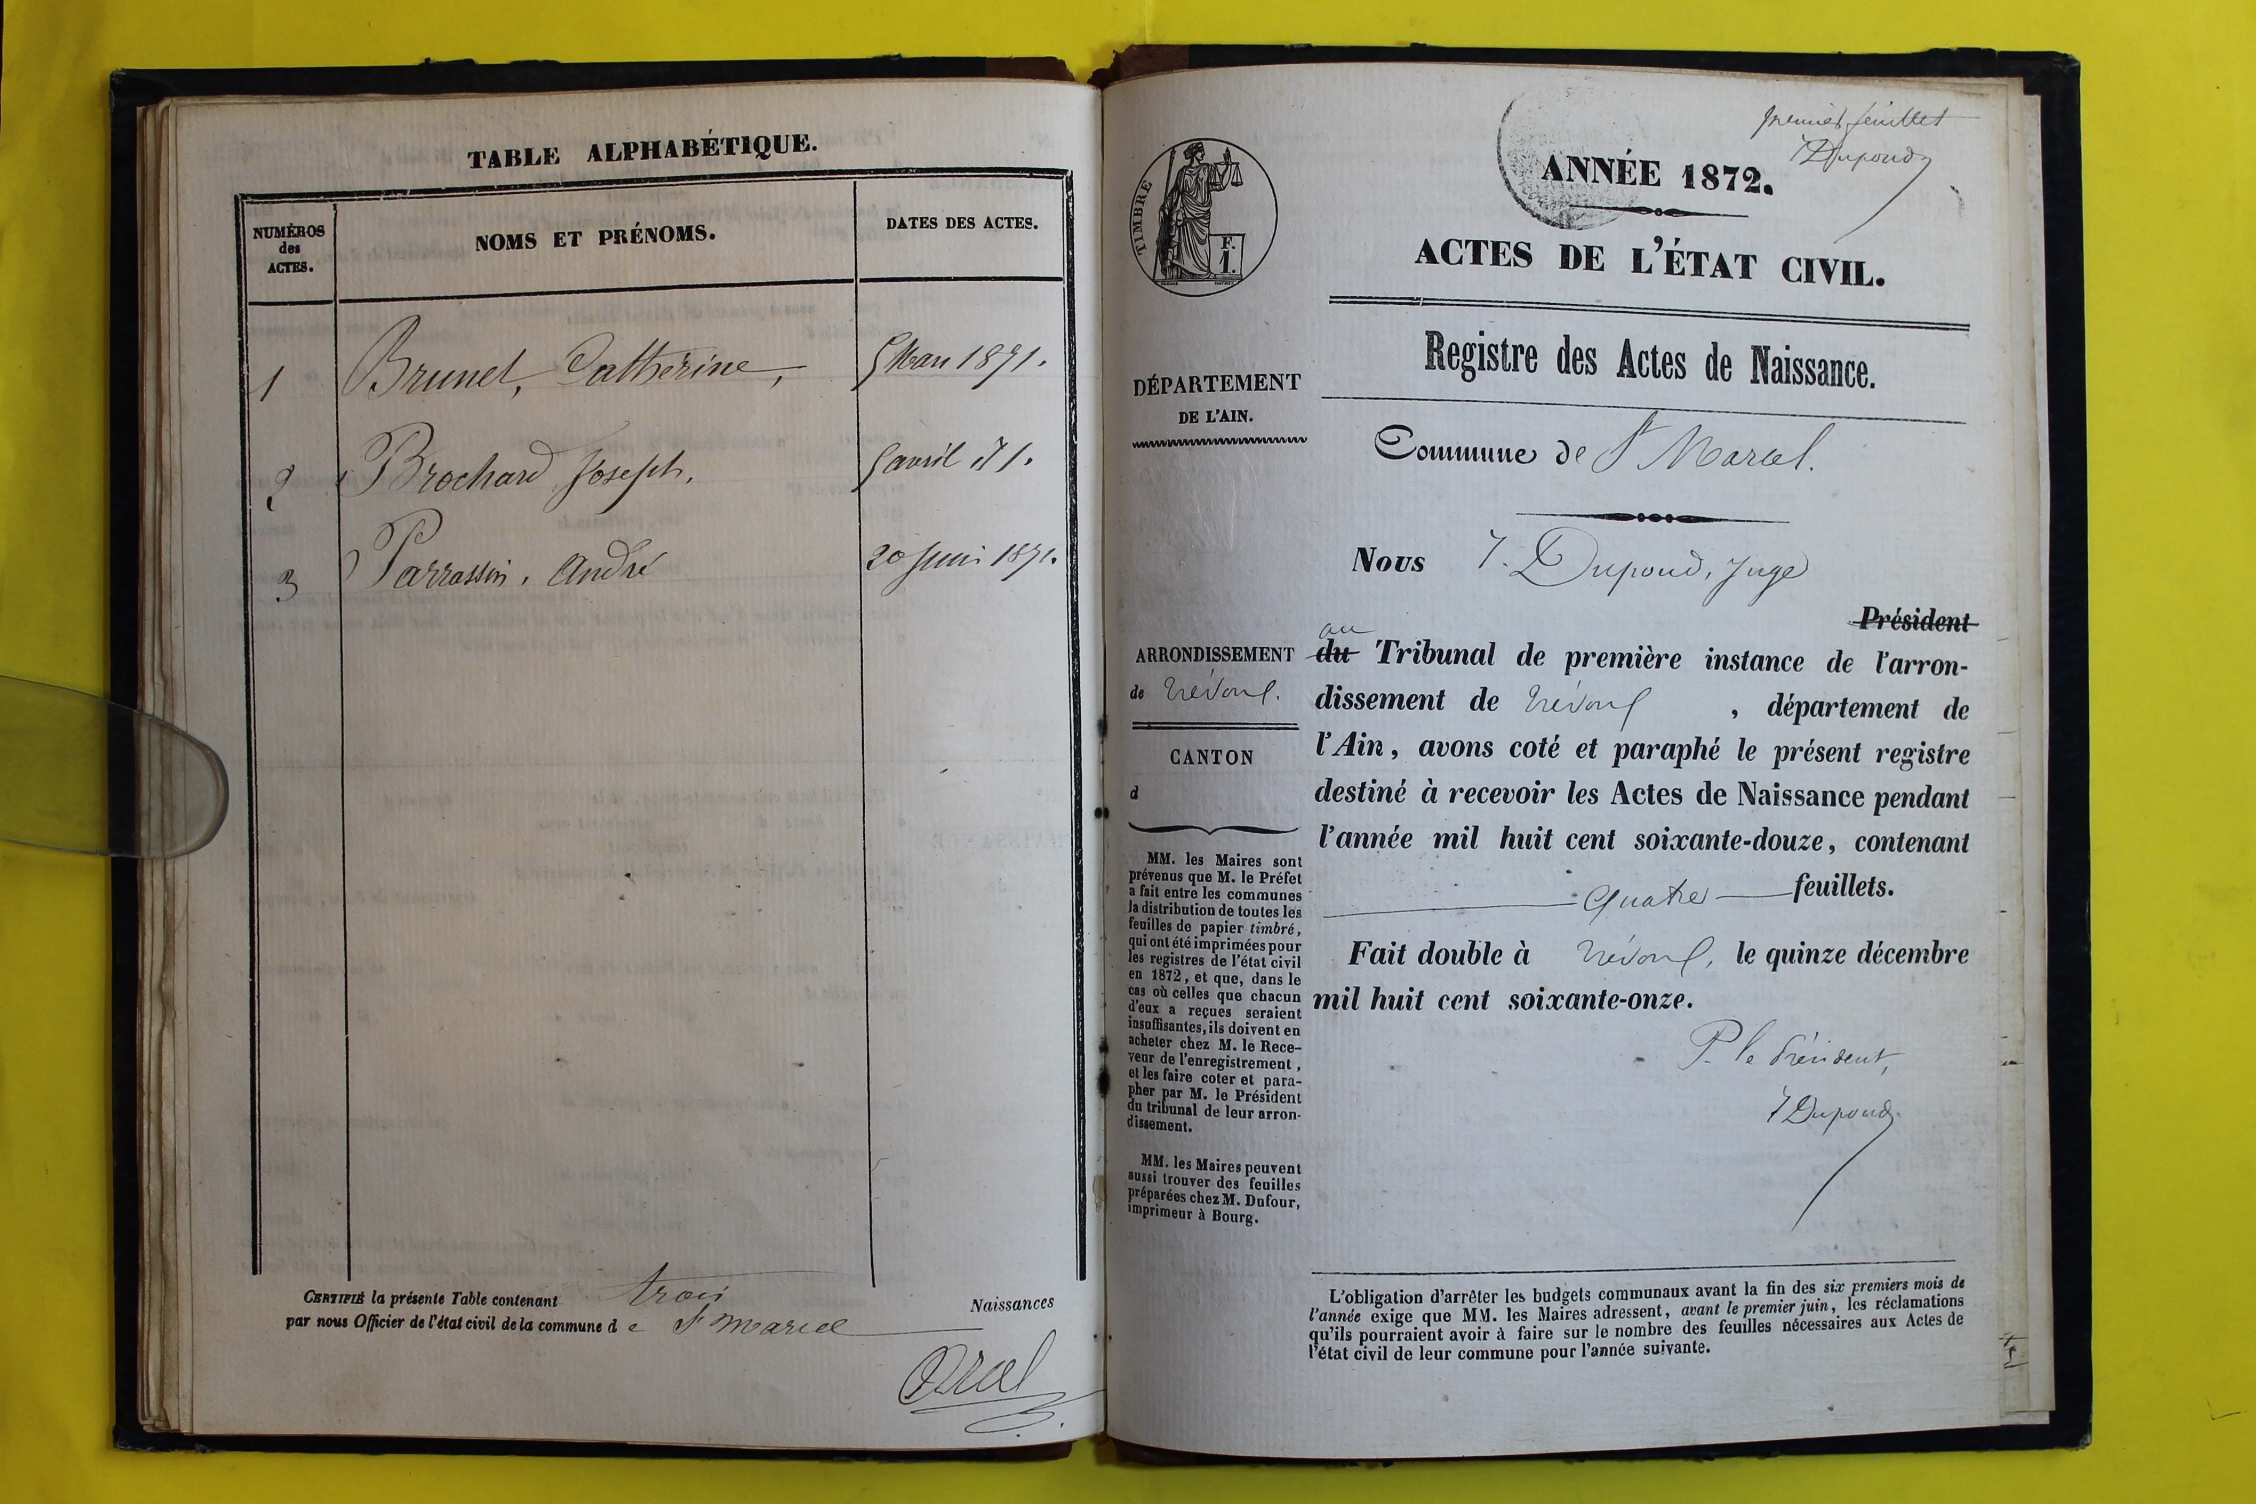 TABLE ALPHABÉTIQUE.
NUMÉROS
des
ACTES.
NOMS ET PRÉNOMS.
DATES DES ACTES.
1 Brunet, Catherine, 5 Mars 1871.
2 Brochard Joseph. 5 avril 71.
3 Parrassin, André 20 Juin 1871.
CERTIFIÉ la présente Table contenant trois Naissances
par nous Officier de l'état civil de la commune de St Marcel
premier feuillet
Dupond
TIMBRE
F.
1.
ANNÉE 1872.
ACTES DE L'ÉTAT CIVIL.
Registre des Actes de Naissance.
DÉPARTEMENT
DE L'AIN.
Commune de St Marcel.
Nous Dupond, Juge
Président
au
ARRONDISSEMENT
de Trévoux.
CANTON
d
du Tribunal de première instance de l'arron-
dissement de Trévoux, département de
l'Ain, avons coté et paraphé le présent registre
destiné à recevoir les Actes de Naissance pendant
l'année mil huit cent soixante-douze, contenant
quatre feuillets.
Fait double à Trévoux, le quinze décembre
mil huit cent soixante-onze.
P. le Président,
Dupond
MM. les Maires sont
prévenus que M. le Préfet
a fait entre les communes
la distribution de toutes les
feuilles de papier timbré,
qui ont été imprimées pour
les registres de l'état civil
en 1872, et que, dans le
cas où celles que chacun
d'eux a reçues seraient
insuffisantes, ils doivent en
acheter chez M. le Rece-
veur de l'enregistrement,
et les faire coter et para-
pher par M. le Président
du tribunal de leur arron-
dissement.
MM. les Maires peuvent
aussi trouver des feuilles
préparées chez M. Dufour,
imprimeur à Bourg.
L'obligation d'arrêter les budgets communaux avant la fin des six premiers mois de
l'année exige que MM. les Maires adressent, avant le premier juin, les réclamations
qu'ils pourraient avoir à faire sur le nombre des feuilles nécessaires aux Actes de
l'état civil de leur commune pour l'année suivante.